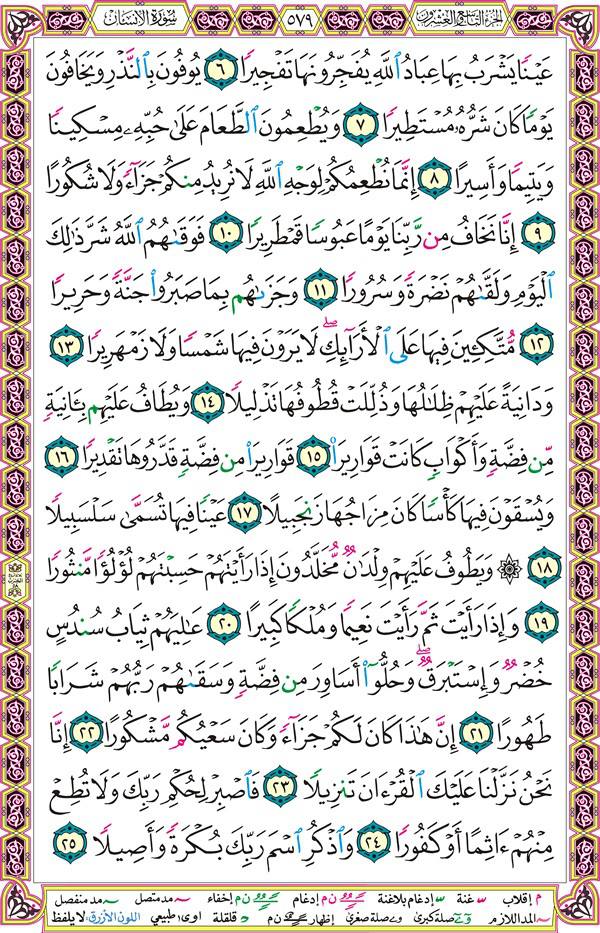 الجزء التاسع والعشرون ٥٧٩ سورة الإنسان
عَيْنًا يَشْرَبُ بِهَا عِبَادُ ٱللَّهِ يُفَجِّرُونَهَا تَفْجِيرًا ٦ يُوفُونَ بِٱلنَّذْرِ وَيَخَافُونَ
يَوْمًا كَانَ شَرُّهُۥ مُسْتَطِيرًا ٧ وَيُطْعِمُونَ ٱلطَّعَامَ عَلَىٰ حُبِّهِۦ مِسْكِينًا
وَيَتِيمًا وَأَسِيرًا ٨ إِنَّمَا نُطْعِمُكُمْ لِوَجْهِ ٱللَّهِ لَا نُرِيدُ مِنكُمْ جَزَآءً وَلَا شُكُورًا
٩ إِنَّا نَخَافُ مِن رَّبِّنَا يَوْمًا عَبُوسًا قَمْطَرِيرًا ١٠ فَوَقَىٰهُمُ ٱللَّهُ شَرَّ ذَٰلِكَ
ٱلْيَوْمِ وَلَقَّىٰهُمْ نَضْرَةً وَسُرُورًا ١١ وَجَزَىٰهُم بِمَا صَبَرُوا۟ جَنَّةً وَحَرِيرًا
١٢ مُّتَّكِـِٔينَ فِيهَا عَلَى ٱلْأَرَآئِكِ ۖ لَا يَرَوْنَ فِيهَا شَمْسًا وَلَا زَمْهَرِيرًا ١٣
وَدَانِيَةً عَلَيْهِمْ ظِلَٰلُهَا وَذُلِّلَتْ قُطُوفُهَا تَذْلِيلًا ١٤ وَيُطَافُ عَلَيْهِم بِـَٔانِيَةٍ
مِّن فِضَّةٍ وَأَكْوَابٍ كَانَتْ قَوَارِيرَا۠ ١٥ قَوَارِيرَا۟ مِن فِضَّةٍ قَدَّرُوهَا تَقْدِيرًا ١٦
وَيُسْقَوْنَ فِيهَا كَأْسًا كَانَ مِزَاجُهَا زَنجَبِيلًا ١٧ عَيْنًا فِيهَا تُسَمَّىٰ سَلْسَبِيلًا
١٨ ۞ وَيَطُوفُ عَلَيْهِمْ وِلْدَٰنٌ مُّخَلَّدُونَ إِذَا رَأَيْتَهُمْ حَسِبْتَهُمْ لُؤْلُؤًا مَّنثُورًا
١٩ وَإِذَا رَأَيْتَ ثَمَّ رَأَيْتَ نَعِيمًا وَمُلْكًا كَبِيرًا ٢٠ عَٰلِيَهُمْ ثِيَابُ سُندُسٍ
خُضْرٌ وَإِسْتَبْرَقٌ ۖ وَحُلُّوٓا۟ أَسَاوِرَ مِن فِضَّةٍ وَسَقَىٰهُمْ رَبُّهُمْ شَرَابًا
طَهُورًا ٢١ إِنَّ هَٰذَا كَانَ لَكُمْ جَزَآءً وَكَانَ سَعْيُكُم مَّشْكُورًا ٢٢ إِنَّا
نَحْنُ نَزَّلْنَا عَلَيْكَ ٱلْقُرْءَانَ تَنزِيلًا ٢٣ فَٱصْبِرْ لِحُكْمِ رَبِّكَ وَلَا تُطِعْ
مِنْهُمْ ءَاثِمًا أَوْ كَفُورًا ٢٤ وَٱذْكُرِ ٱسْمَ رَبِّكَ بُكْرَةً وَأَصِيلًا ٢٥
م إقلاب غنة إدغام بلاغنة ن م إدغام ن م إخفاء مد متصل مد منفصل
المد اللازم صلة كبرى صلة صغرى إظهار ن م قلقلة ا و ى ر طبيعي اللون الأزرق: لا يلفظ